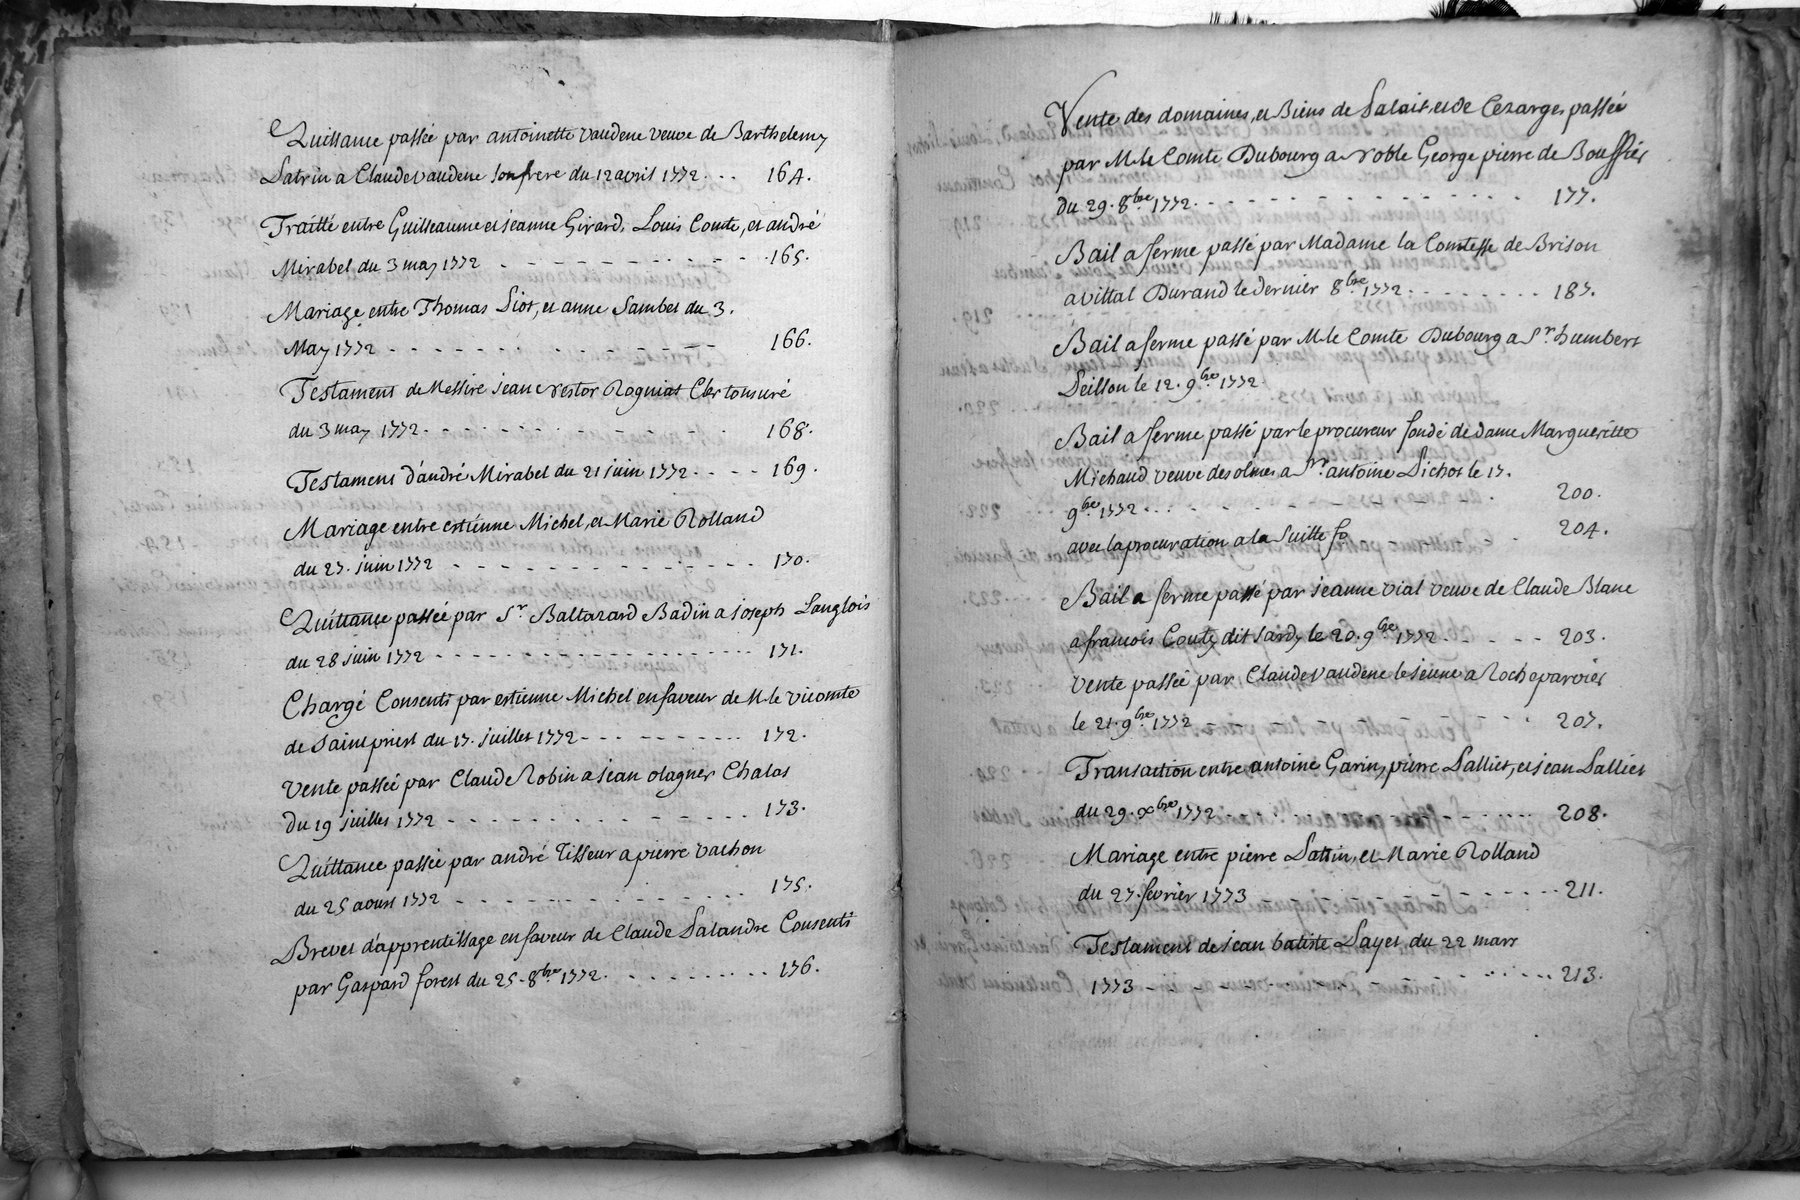 Quittance passée par antoinette vaudene veuve de Barthelemy
Latrin a Claude vaudene son frere du 12 avril 1772 . . . 164.
Traitté entre Guilleaume et jeanne Girard, Louis Comte, et andré
Mirabel du 3 may 1772 - - - - - - - - - - 165.
Mariage entre Thomas Liot, et anne Sambet du 3.
May 1772 - - - - - - - - - - - - 166.
Testament de Messire jean nestor Rogniat Cler tonsuré
du 3 may 1772 - - - - - - - - - - - - 168.
Testament d'andré Mirabel du 21 juin 1772 - - - - 169.
Mariage entre estienne Michel, et Marie Rolland
du 27. juin 1772 - - - - - - - - - - - - 170.
Quittance passée par Sr. Baltazard Badin a joseph Langlois
du 28 juin 1772 - - - - - - - - - - - - 171.
Chargé Consenti par estienne Michel en faveur de M. le vicomte
de Saint priest du 17. juillet 1772 - - - - - - - - - 172.
Vente passée par Claude Robin a jean olagner Chalas
du 19 juillet 1772 - - - - - - - - - - - - 173.
Quittance passée par andré Tisseur a pierre vachon
du 25 aoust 1772 - - - - - - - - - - - - 175.
Brevet d'apprentissage en faveur de Claude Lalandre Consenti
par Gaspard forest du 25. 8bre 1772 - - - - - - - - - 176.
Vente des domaines, et Biens de Salait, et de Cezarges, passée
par M. le Comte Dubourg a noble George pierre de Bouffier
du 29. 8bre 1772 - - - - - - - - - - - - 177.
Bail a ferme passé par Madame la Comtesse de Brison
a vittal Durand le dernier 8bre 1772 - - - - - - - - 187.
Bail a ferme passé par M. le Comte Dubourg a Sr. humbert
Seillon le 12. 9bre 1772.
Bail a ferme passé par le procureur fondé de dame Margueritte
Michaud veuve desolmes, a Sr. antoine Pichot le 17.
9bre 1772 - - - - - - - - - - - - 200.
avec la procuration a la Suitte fo - 204.
Bail a ferme passé par jeanne vial veuve de Claude Blanc
a francois Coute, dit Sardy le 20. 9bre 1772 - - - - - 203.
Vente passée par Claude vaudene le jeune a Roche parvier
le 21. 9bre 1772 - - - - 207.
Transaction entre antoine Garin, pierre Lallier, et jean Lallier
du 29. Xbre 1772 - - - - - - - - - - - - 208.
Mariage entre pierre Lattin, et Marie Rolland
du 27. fevrier 1773 - - - - - - - - - - - - 211.
Testament de jean batiste Layet du 22 mars
1773 - - - - - - - - - - - - 213.